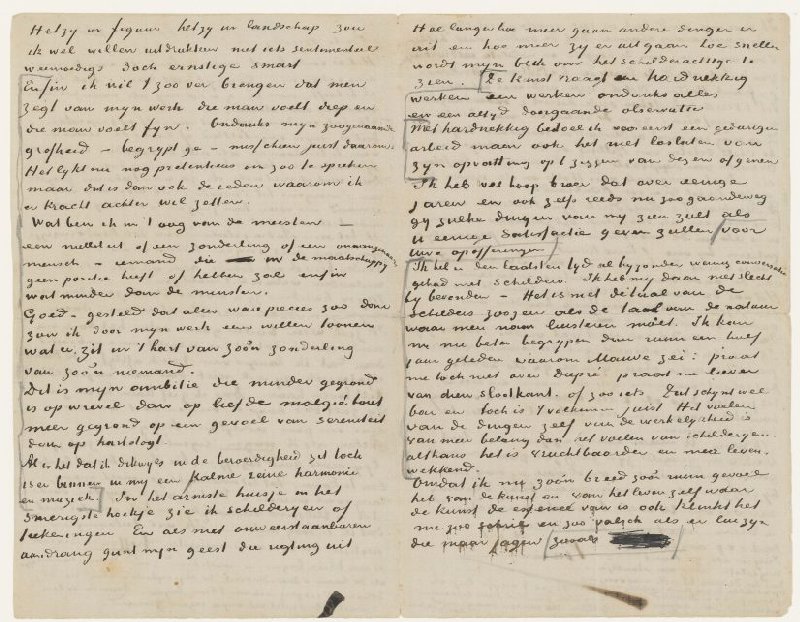 Hetzy in figuur hetzy in landschap zou
ik wel willen uitdrukken niet iets sentimenteel
weemoedigs doch ernstige smart
Enfin ik wil 't zoo ver brengen dat men
zegt van myn werk die man voelt diep en
die man voelt fyn. Ondanks myn zoogenaamde
grofheid – begrypt ge – misschien juist daarom.
Het lykt nu nog pretentieus om zoo te spreken
maar dat is dan ook de reden waarom ik
er kracht achter wil zetten.
Wat ben ik in 't oog van de meesten –
een nulliteit of een zonderling of een onaangenaam
mensch – iemand die in de maatschappy
geen positie heeft of hebben zal enfin
wat minder dan de minsten.
Goed – gesteld dat alles ware precies zoo dan
zou ik door myn werk eens willen toonen
wat er zit in 't hart van zoo'n zonderling
van zoo'n niemand.
Dit is myn ambitie die minder gegrond
is op wrevel dan op liefde malgré tout
meer gegrond op een gevoel van sereniteit
dan op hartstogt.
Al is het dat ik dikwyls in de beroerdigheid zit toch
is er binnen in my een kalme reine harmonie
en muziek. In het armste huisje in het
smerigste hoekje zie ik schilderyen of
teekeningen. En als met onweerstaanbaren
aandrang gaat myn geest die rigting uit
Hoe langer hoe meer gaan andere dingen er
uit en hoe meer zy er uit gaan hoe sneller
wordt myn blik voor het schilderachtige te
zien. De kunst vraagt een hardnekkig
werken een werken ondanks alles
en een altyd doorgaande observatie
Met hardnekkig bedoel ik vooreerst een gedurigen
arbeid maar ook het niet loslaten van
zyn opvatting op 't zeggen van dezen of genen
Ik heb wel hoop broer dat over eenige
jaren en ook zelfs reeds nu zoo gaandeweg
gy zulke dingen van my zien zult als
U eenige satisfactie geven zullen voor
Uwe opofferingen
Ik heb in den laatsten tyd al byzonder weinig conversatie
gehad met schilders. Ik heb my daar niet slecht
by bevonden – Het is niet de taal van de
schilders zoozeer als de taal van de natuur
waar men naar luisteren moet. Ik kan
nu nu beter begrypen dan ruim een half
jaar geleden waarom Mauve zei: praat
me toch niet over Dupré praat me liever
van dien slootkant. of zoo iets Dat schynt wel
bar en toch is 't volkomen juist Het voelen
van de dingen zelf van de werkelykheid is
van meer belang dan het voelen van schilderyen.
althans het is vruchtbaarder en meer leven
wekkend.
Omdat ik nu zoo'n breed zoo'n ruim gevoel
heb van de kunst en van het leven zelf waar
de kunst de essence van is ook klinkt het
my zoo schril en zoo valsch als er lui zyn
die maar jagen zooals